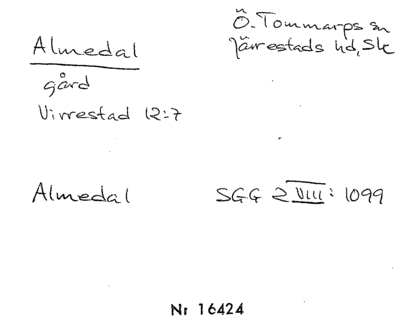 Almedal
Ö. Tommarps sn
Järrestads hd, Sk
gård
Virrestad 12:7
Almedal
SGG 2 VIII: 1099
Nr 16424